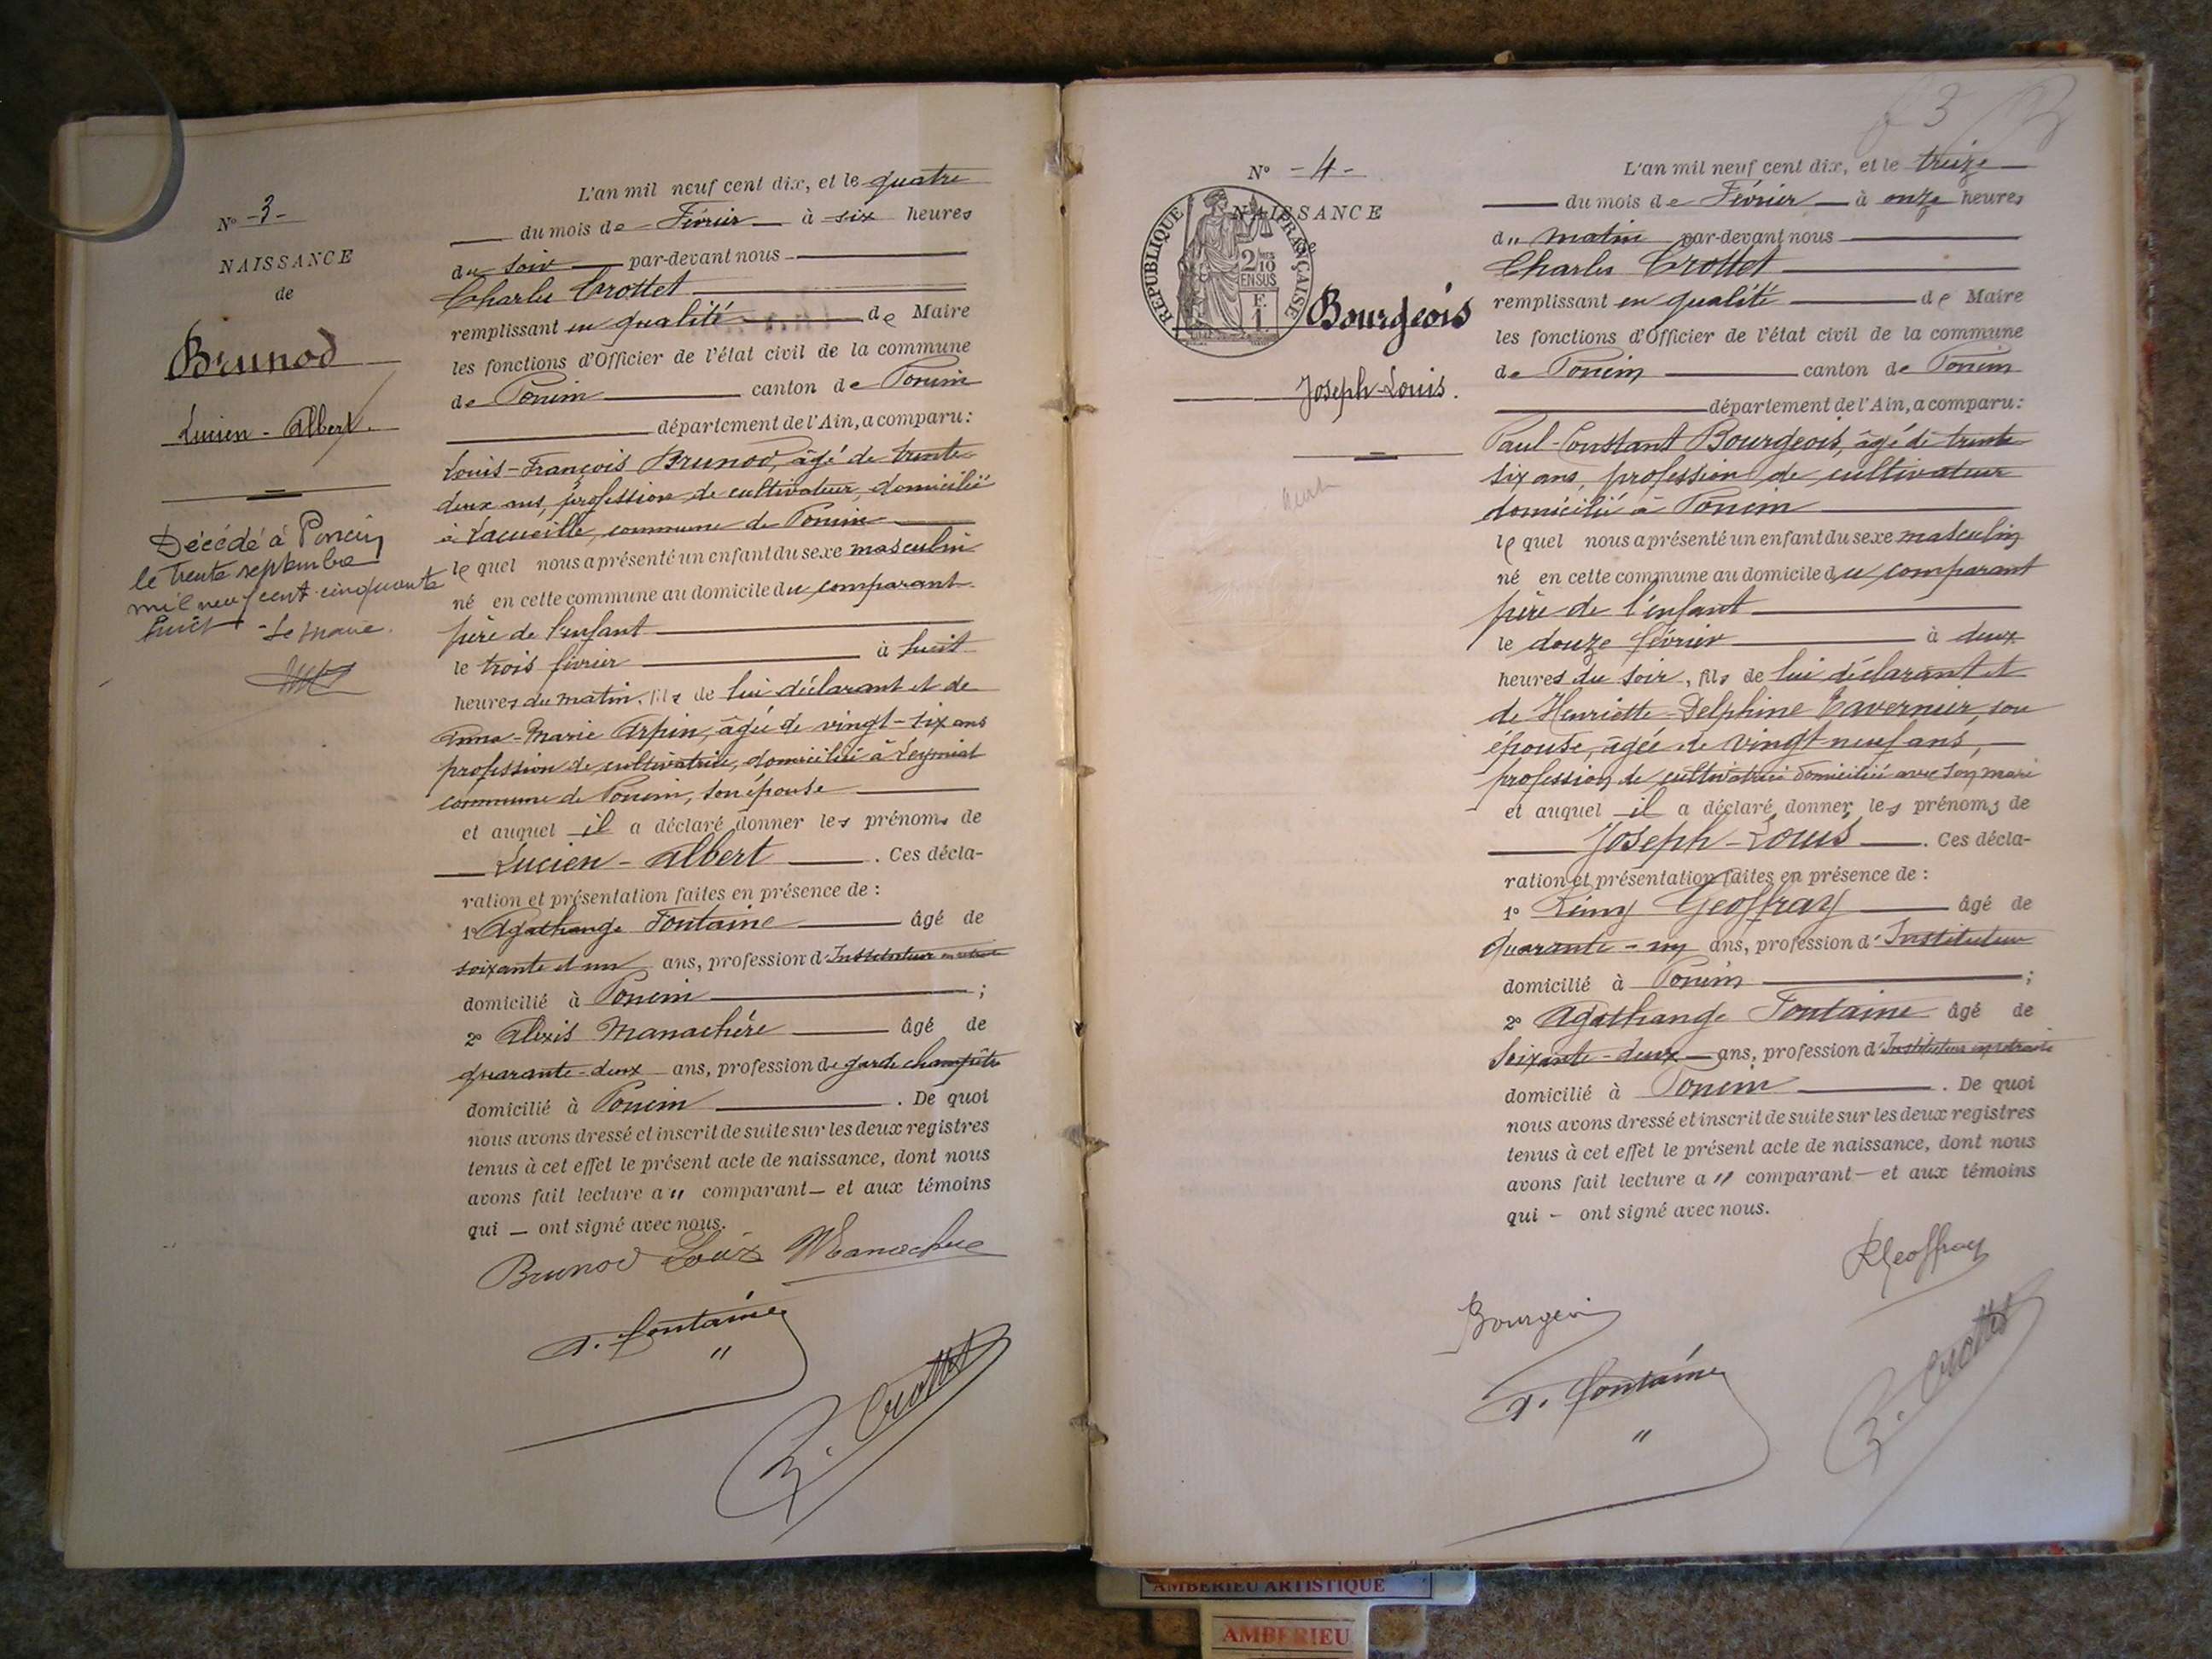 N° - 3 -
NAISSANCE
de
Brunod
Lucien - Albert.
Décédé à Poncin
le trente septembre
mil neuf cent cinquante
huit - Le Maire.
L'an mil neuf cent dix, et le quatre
du mois de Février à six heures
du soir par-devant nous
Charles Crottet
remplissant en qualité de Maire
les fonctions d'Officier de l'état civil de la commune
de Poncin canton de Poncin
département de l'Ain, a comparu :
Louis-François Brunod, âgé de trente
deux ans, profession de cultivateur, domicilié
à commune de Poncin
lequel nous a présenté un enfant du sexe masculin
né en cette commune au domicile du comparant
père de l'enfant
le trois février à huit
heures du matin, fils de lui déclarant et de
Anna-Marie Arpin, âgée de vingt-six ans
profession de cultivatrice, domiciliée à Leymiat
commune de Poncin, son épouse
et auquel il a déclaré donner les prénoms de
Lucien - Albert . Ces décla-
ration et présentation faites en présence de :
1° Agathange Fontaine âgé de
soixante et un ans, profession d'Instituteur en retraite
domicilié à Poncin ;
2° Alexis Manachère âgé de
quarante-deux ans, profession de garde champêtre
domicilié à Poncin . De quoi
nous avons dressé et inscrit de suite sur les deux registres
tenus à cet effet le présent acte de naissance, dont nous
avons fait lecture au comparant et aux témoins
qui ont signé avec nous.
Brunod Louis Manachère
A. Fontaine
C. Crottet
3
N° - 4 -
NAISSANCE
de
REPUBLIQUE FRANÇAISE
2/10
EN SUS
F.
1.
Bourgeois
Joseph-Louis.
L'an mil neuf cent dix, et le treize
du mois de Février à onze heures
du matin par-devant nous
Charles Crottet
remplissant en qualité de Maire
les fonctions d'Officier de l'état civil de la commune
de Poncin canton de Poncin
département de l'Ain, a comparu :
Paul-Constant Bourgeois, âgé de trente
six ans, profession de cultivateur
domicilié à Poncin
lequel nous a présenté un enfant du sexe masculin
né en cette commune au domicile du comparant
père de l'enfant
le douze février à deux
heures du soir, fils de lui déclarant et
de Henriette-Delphine Tavernier, son
épouse, âgée de vingt-neuf ans,
profession de cultivatrice domiciliée avec son mari
et auquel il a déclaré donner les prénoms de
Joseph-Louis . Ces décla-
ration et présentation faites en présence de :
1° Rémy Geoffray âgé de
quarante-un ans, profession d'Instituteur
domicilié à Poncin ;
2° Agathange Fontaine âgé de
soixante-deux ans, profession d'Instituteur en retraite
domicilié à Poncin . De quoi
nous avons dressé et inscrit de suite sur les deux registres
tenus à cet effet le présent acte de naissance, dont nous
avons fait lecture au comparant et aux témoins
qui ont signé avec nous.
R Geoffray
Bourgeois
A. Fontaine
C. Crottet
AMBERIEU ARTISTIQUE
AMBERIEU